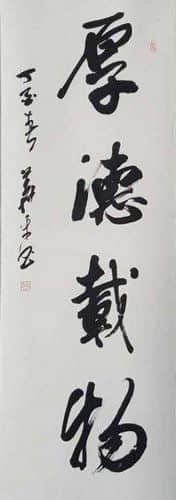 厚德載物
丁酉春